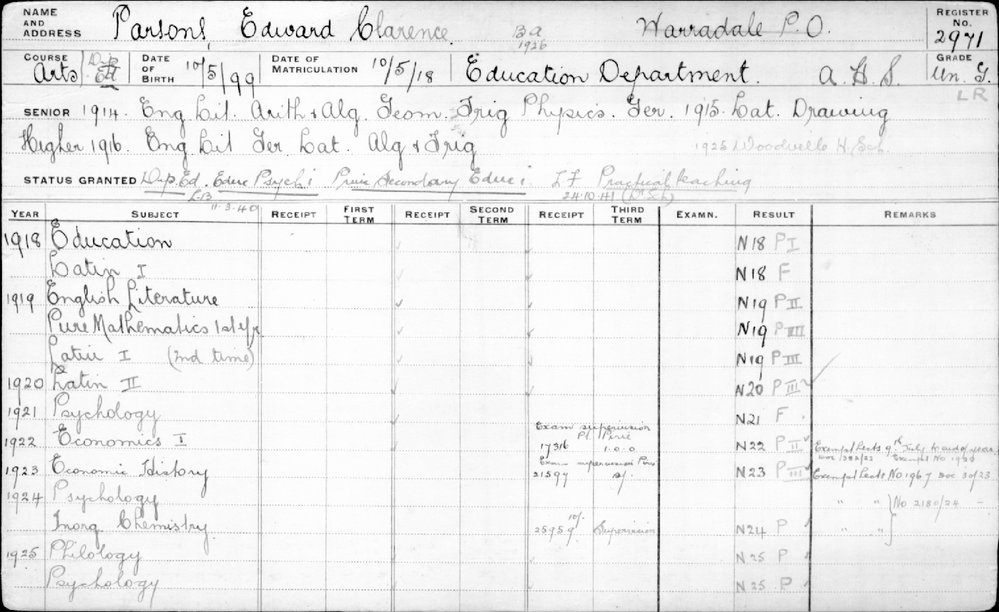 NAME AND ADDRESS Parsons, Edward Clarence. B A 1926 Warradale P.O. REGISTER No. 2971
COURSE Arts Dip Ed DATE OF BIRTH 10/5/99 DATE OF MATRICULATION 10/5/18 Education Department. A. H. S. GRADE Un. G.
L R
SENIOR 1914. Eng Lit. Arith & Alg. Geom. Trig Physics. Ger. 1915. Lat. Drawing
Higher 1916. Eng Lit Ger. Lat. Alg & Trig 1925 Woodville H. Sch.
STATUS GRANTED Dip. Ed. Educ Psych i Prin: Secondary Educ i. Practical teaching
11-3-40 24.10.41
YEAR SUBJECT RECEIPT FIRST TERM RECEIPT SECOND TERM RECEIPT THIRD TERM EXAMN. RESULT REMARKS
1918 Education N18 P I
Latin I N18 F
1919 English Literature N19 P II
Pure Mathematics 1st Yr N19 P III
Latin I (2nd time) N19 P III
1920 Latin II N20 P III
1921 Psychology N21 F
Exam supervision
1922 Economics I 17316 1.0.0 N22 P II Exempt Lects
Exam supervision
1923 Economic History 21597 N23 P III Exempt Lects No 1967 Doc 30/23
1924 Psychology " " No 2180/24
Inorg Chemistry 25959 10/- Supervision N24 P " "
1925 Philology N25 P
Psychology N25 P